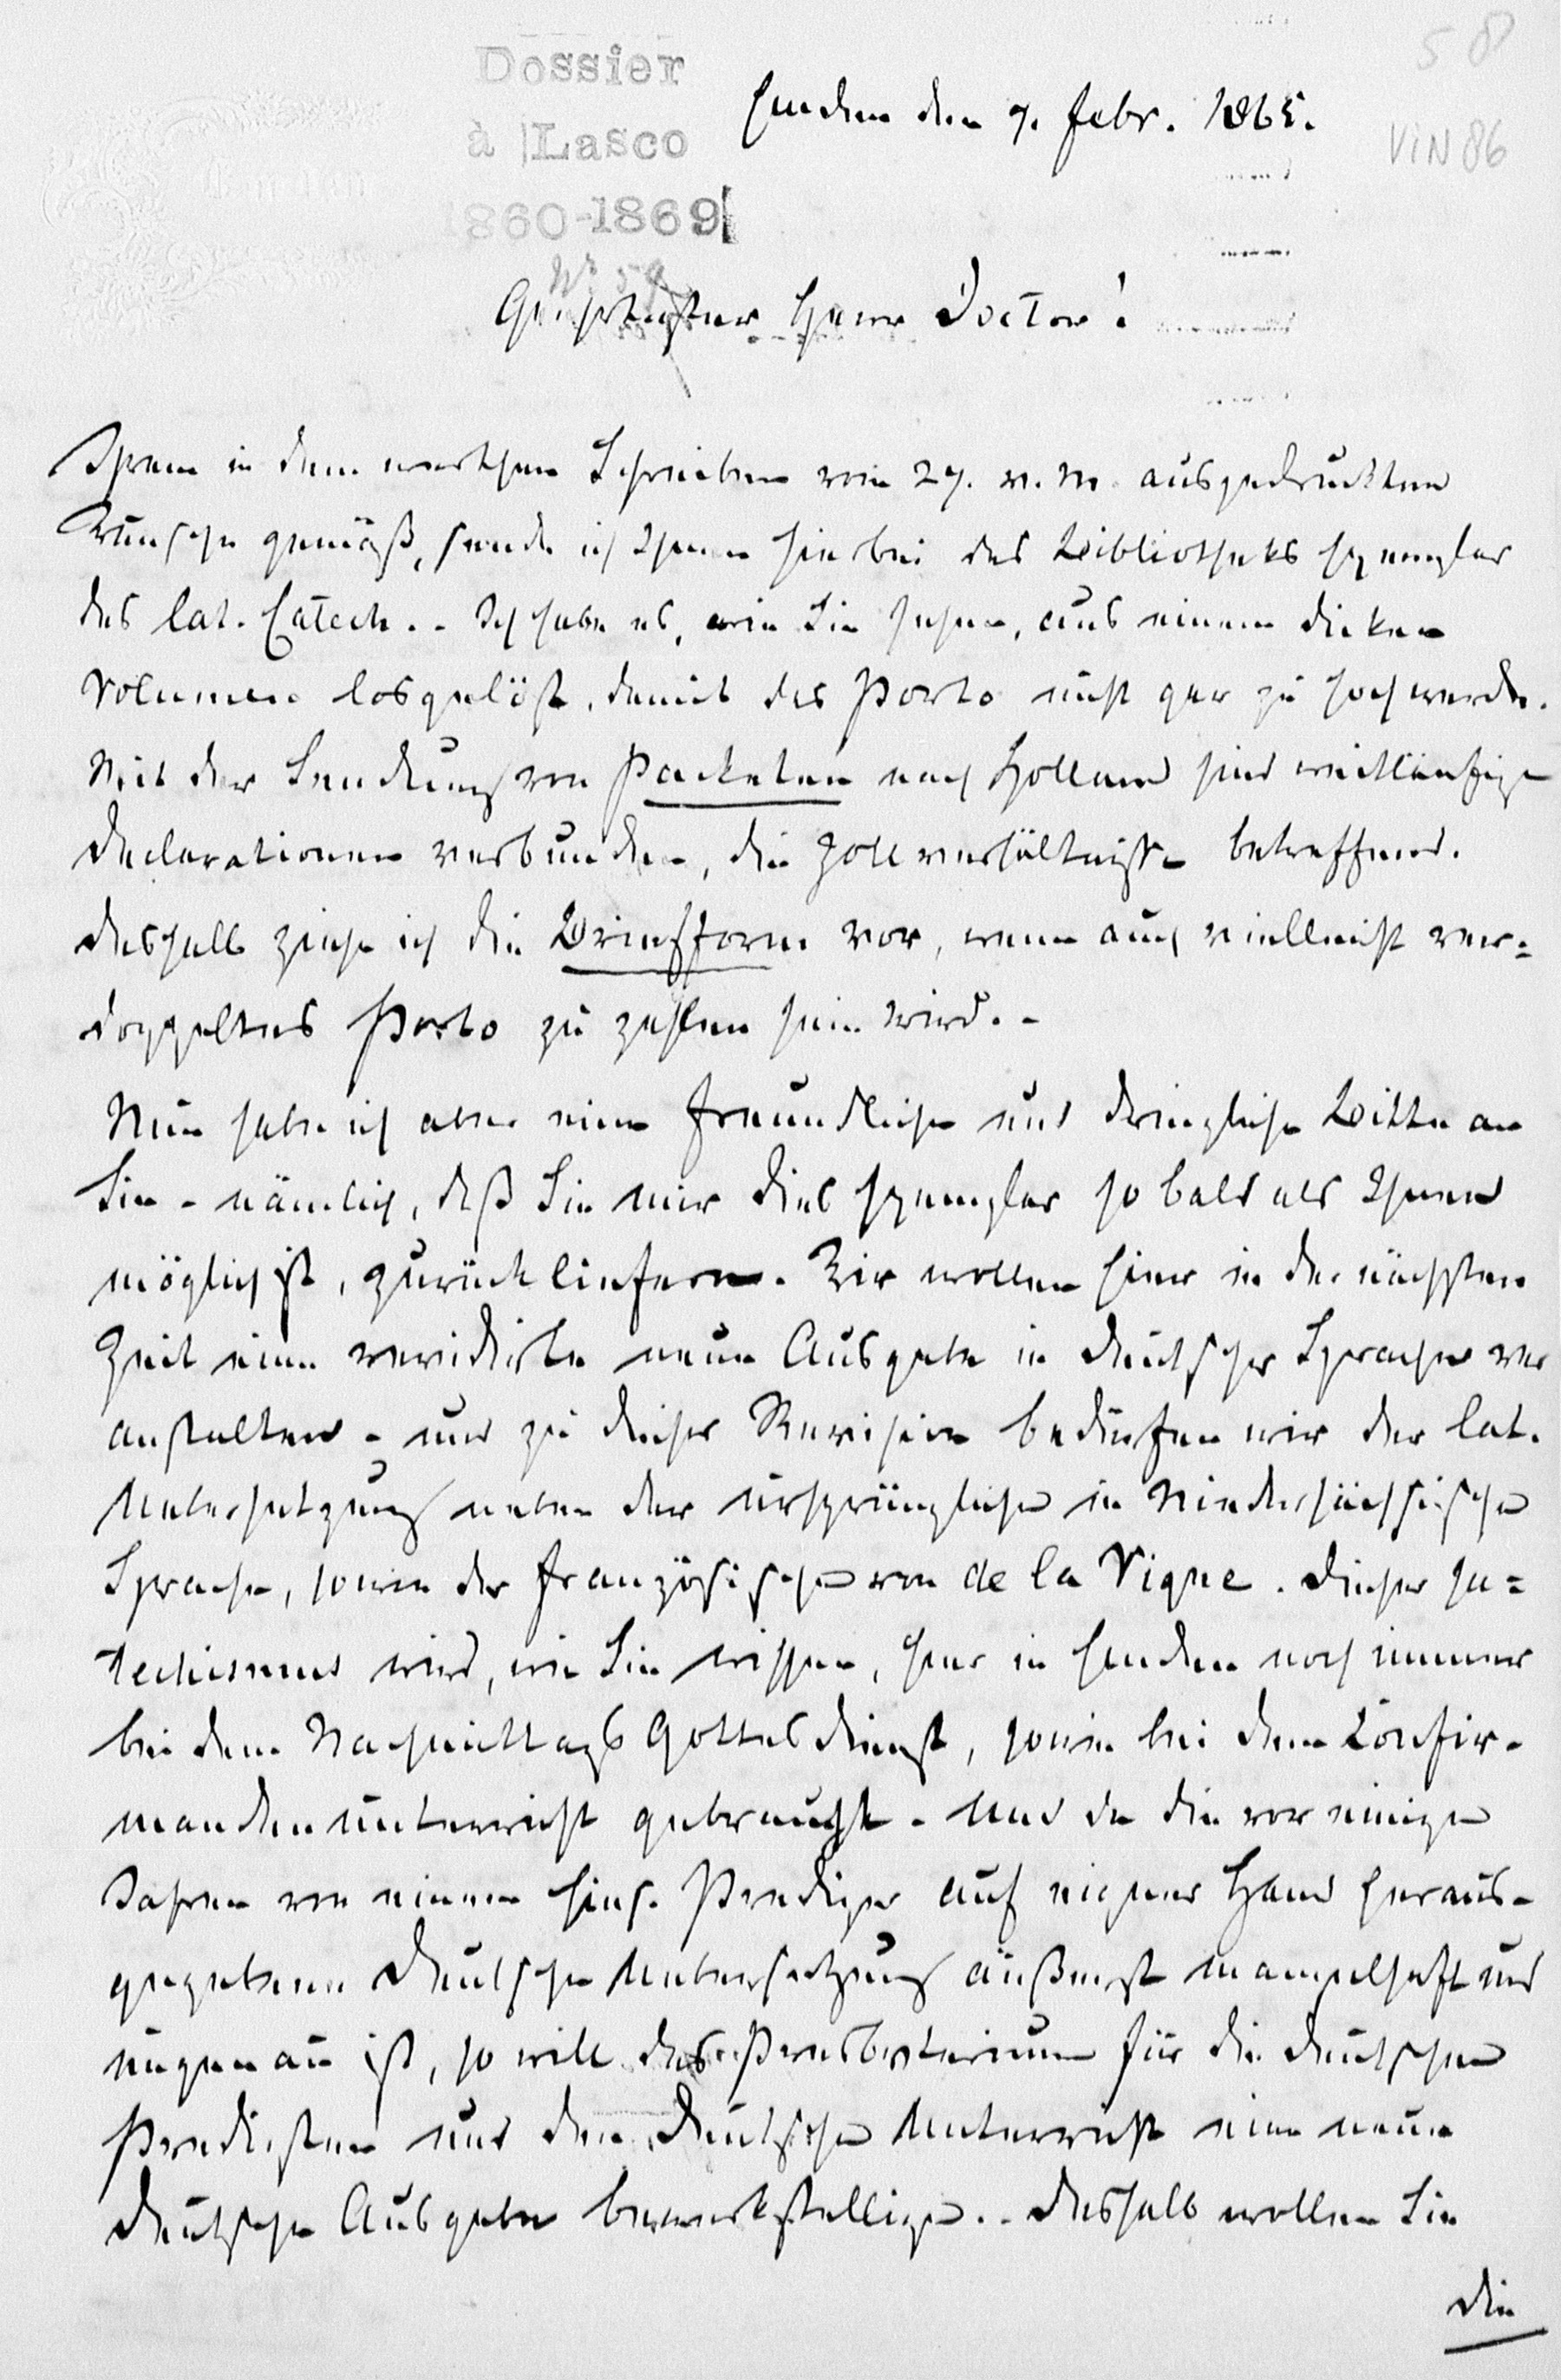 58
Dossier
à Lasco
1860-1869
VIN 86
Emden den 7. Febr. 1865.
Geehrtester Herr Doctor!
Ihrem in dem werthen Schreiben vom 27. v. M. ausgedruckten
Wunsche gemäß, sende ich Ihnen hierbei das Bibliotheks Exemplar
des lat. Catech. - Ich habe es, wie Sie sehen, aus einem dicken
Volumen losgelöst, damit das Porto nicht gar zu hoch werde.
Mit der Sendung von Packeten nach Holland sind weitläufige
Declarationen verbunden, die Zollverhältnisse betreffend.
Deshalb ziehe ich die Briefform vor, wenn auch vielleicht ver=
doppeltes Porto zu zahlen sein wird. -
Nun habe ich aber eine freundliche und dringliche Bitte an
Sie - nämlich, daß Sie mir dies Exemplar so bald als Ihnen
möglich ist, zurückliefern. Wir wollen hier in der nächsten
Zeit eine revidirte neue Ausgabe in deutscher Sprache ver
anstalten - und zu dieser Revision bedürfen wir der lat.
Uebersetzung neben der ursprünglichen in Niedersächsischer
Sprache, sowie der französischen von de la Vigne. Dieser Ca=
techismus wird, wie Sie wissen, hier in Emden noch immer
bei dem Nachmittags Gottesdienst, sowie bei dem Confir-
mandenunterricht gebraucht. Und da die vor einigen
Jahren von einem hies. Prediger auf eigner Hand heraus-
gegebene deutsche Uebersetzung äußerst mangelhaft und
ungenau ist, so will das Presbyterium für die deutschen
Predigten und den deutschen Unterricht eine neue
deutsche Ausgabe bewerkstelligen. - Deshalb wollen Sie
die